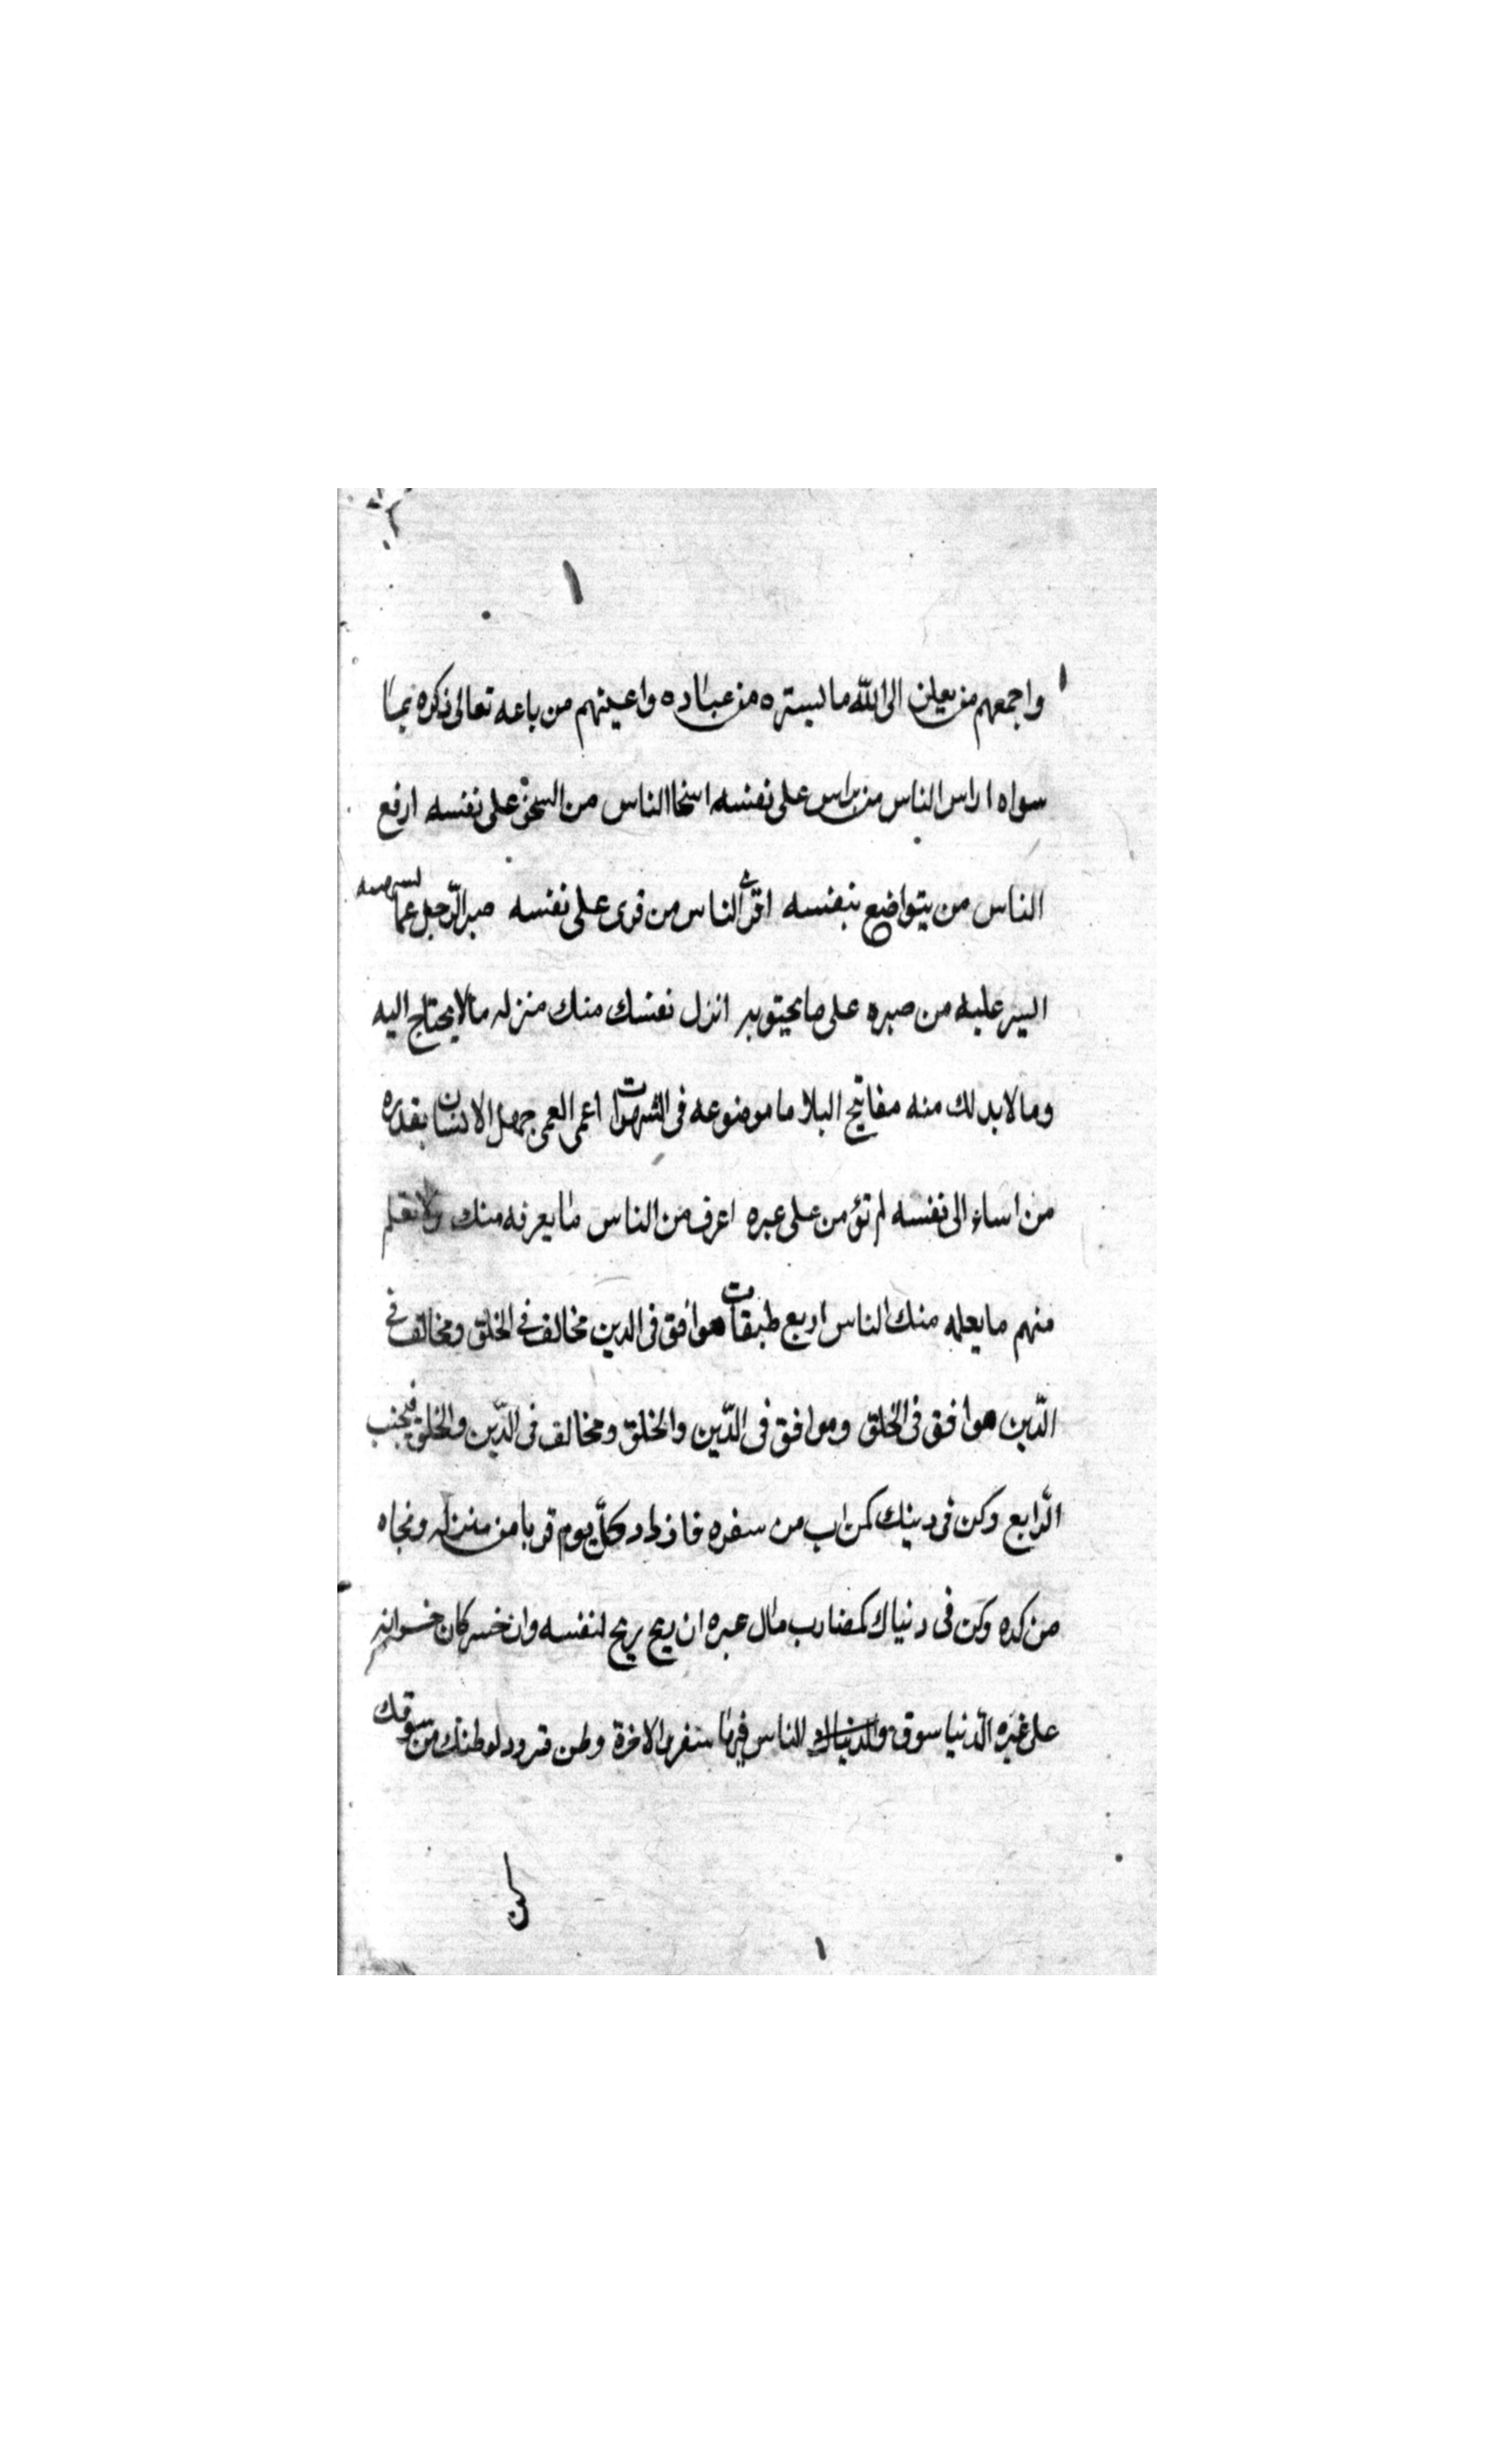 واجمعهم من يعلن الى الله ما ليستره من عباده واعينهم من باعه تعالى ذكره بما
سواه اراس الناس من يراس على نفسه اسخا الناس من السخى على نفسه ارفع
الناس من يتواضع بنفسه اقوى الناس من قوى على نفسه صبر الرّجل عما
اليسر عليه من صبره على ما انزل نفسك منك منزله ما لا يحتاج اليه
وما لا بد لك منه مفاتيح البلا ما موضوعه فى الشهوات اعمى العمى جهل الانسان بقدره
من اساء الى نفسه لم تؤمن على غيره اعرف من الناس ما يعرفه منك ولا تعلم
منهم ما يعلمه منك الناس اربع طبقات موافق فى الدين مخالف فى الخلق ومخالف فى
الدّين موافق فى الخلق وموافق فى الدّين والخلق ومخالف فى الدّين والخلق فتجنب
الرّابع وكن فى دينك كمن اب من سفره فازداد كلّ يوم قربا من منزله ونجاه
من كده وكن فى دنياك كمضارب مال غيره ان ربح ربح لنفسه وان خسر كان خسرانه
على غيره الدّنيا سوق الناس فيها سفر والاخرة وطن فتزود لوطنك من سوقك